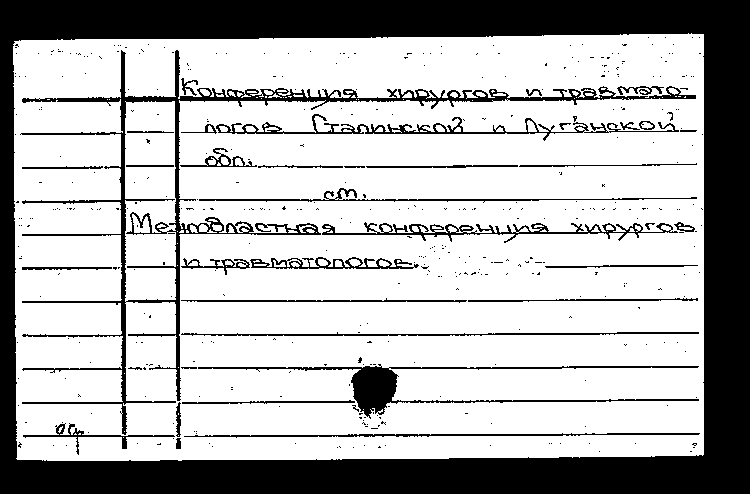 Конференция хирургов и травмато-
логов Сталинской и Луганской
обл.
см.
Межобластная конференция хирургов
и травматологов.